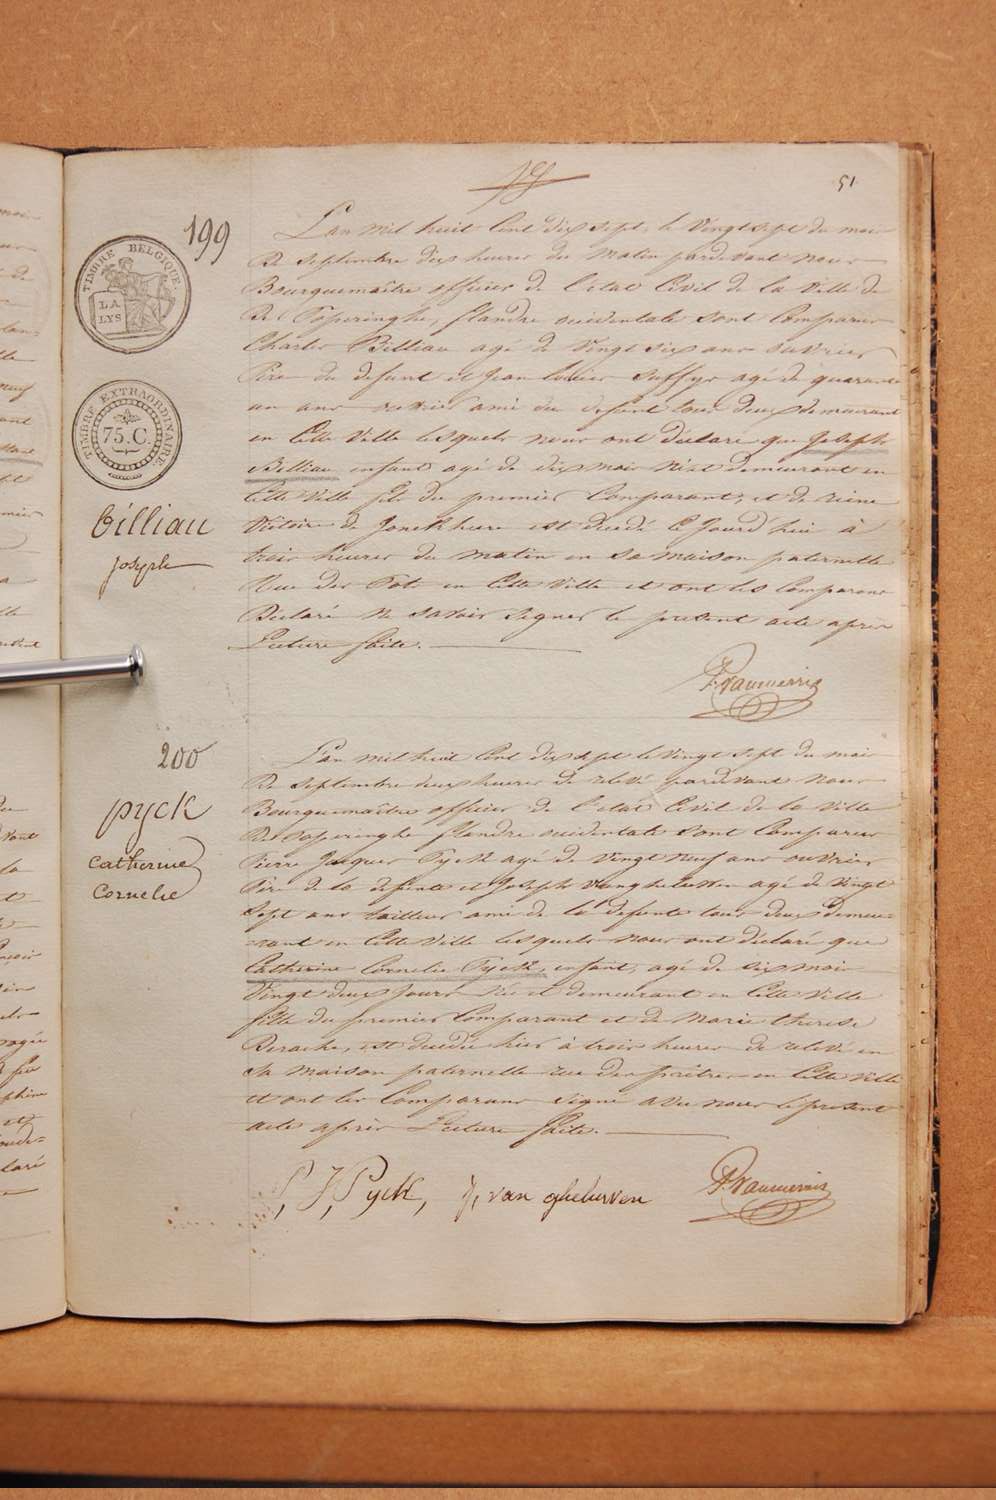 51
199
TIMBRE BELGIQUE.
LA
LYS
TIMBRE EXTRAORDINAIRE.
75.C.
Billiau
Joseph
L'an mil huit Cent dix sept, le vingt sept du mois
De Septembre dix heures du Matin pardevant nous
Bourguemaître officier de l'état Civil de la Ville de
De Poperinghe, flandre occidentale sont Comparus
Charles Billiau agé de Vingt six ans ouvrier
Pire du defunt et Jean Louis agé de quarante
un ans ouvrier ami du defunt tous deux demeurant
en Cette Ville lesquels nous ont déclaré que Joseph
Billiau enfant agé de dix mois Né et demeurant en
Cette Ville fils du premier Comparant, et de reine
Victoire de Jonckheere est decedé Ce Jourd'hui à
trois heures du matin en sa maison paternelle
Rue des Pots en Cette Ville et ont les Comparans
Déclaré Ne savoir signer le present acte après
Lecture faite.
200
Pyck
Catherine
Cornelie
L'an mil huit Cent dix sept le vingt sept du mois
De Septembre deux heures de relevé pardevant nous
Bourguemaître officier de l'état Civil de la Ville
De Poperinghe flandre occidentale sont Comparus
Pierre Jacques Pyck agé de Vingt Neuf ans ouvrier
Père de la defunte et Joseph agé de Vingt
Sept ans tailleur ami de la defunte tous deux demeu=
=rant en Cette Ville lesquels nous ont déclaré que
Catherine Cornelie Pyck, enfant, agé de six mois
Vingt deux Jours Née et demeurant en Cette Ville
fille du premier Comparant et de Marie therese
est decedée hier à trois heures de relevé en
Sa Maison paternelle rue des prêtres en Cette Ville
et ont les Comparans signé avec nous le present
acte après Lecture faite.
P, J, Pyck, J, van